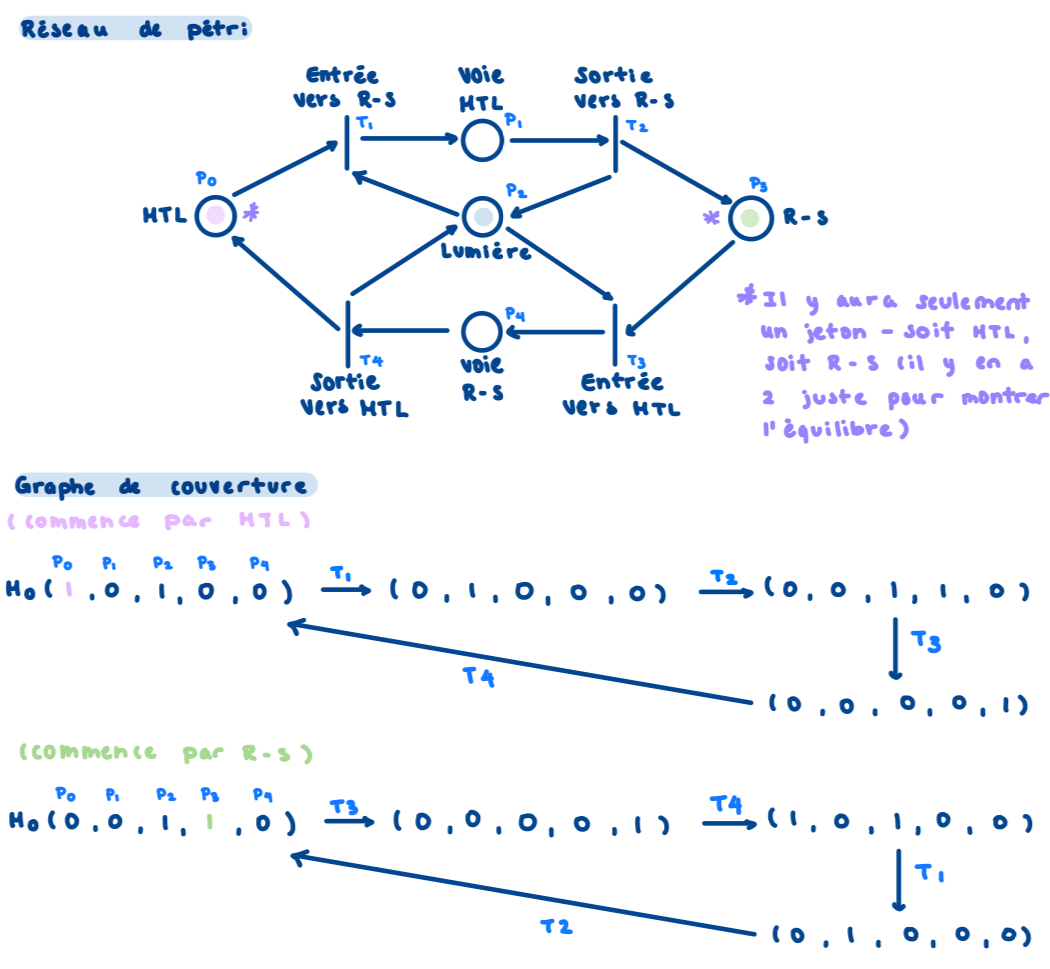 Réseau de pétri
Entrée vers R-S
Voie MTL
Sortie vers R-S
T1
P1
T2
P0
P2
P3
MTL *
* R-S
Lumière
P4
T4
T3
Sortie vers MTL
voie R-S
Entrée vers MTL
* Il y aura seulement
un jeton - soit MTL,
soit R-S (il y en a
2 juste pour montrer
l'équilibre)
Graphe de couverture
(commence par MTL)
P0 P1 P2 P3 P4
M0 (1, 0, 1, 0, 0) T1 (0, 1, 0, 0, 0) T2 (0, 0, 1, 1, 0)
T3
T4
(0, 0, 0, 0, 1)
(commence par R-S)
P0 P1 P2 P3 P4
M0 (0, 0, 1, 1, 0) T3 (0, 0, 0, 0, 1) T4 (1, 0, 1, 0, 0)
T1
T2
(0, 1, 0, 0, 0)